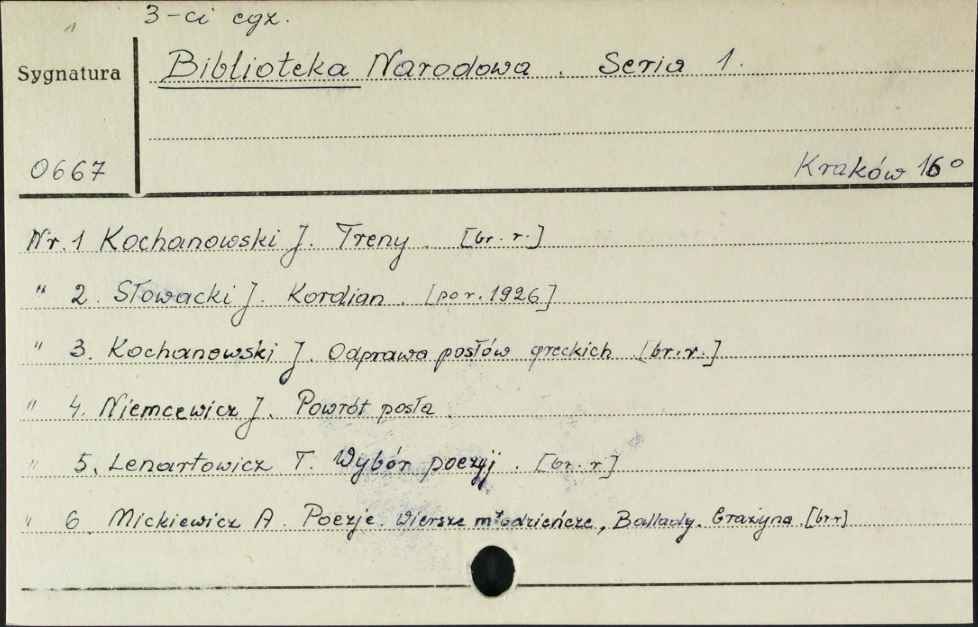 1
3-ci egz.
Sygnatura
Biblioteka Narodowa. Seria 1.
0667
Kraków 16°
Nr. 1 Kochanowski J. Treny. [br. r.]
" 2. Słowacki J. Kordian. [por. 1926]
" 3. Kochanowski J. Odprawa posłów greckich [br.r.]
" 4. Niemcewicz J. Powrót posła.
" 5. Lenartowicz T. Wybór poezyj. [br. r.]
" 6 Mickiewicz A. Poezje. Wiersze młodzieńcze, Ballady. Grażyna. [br r]